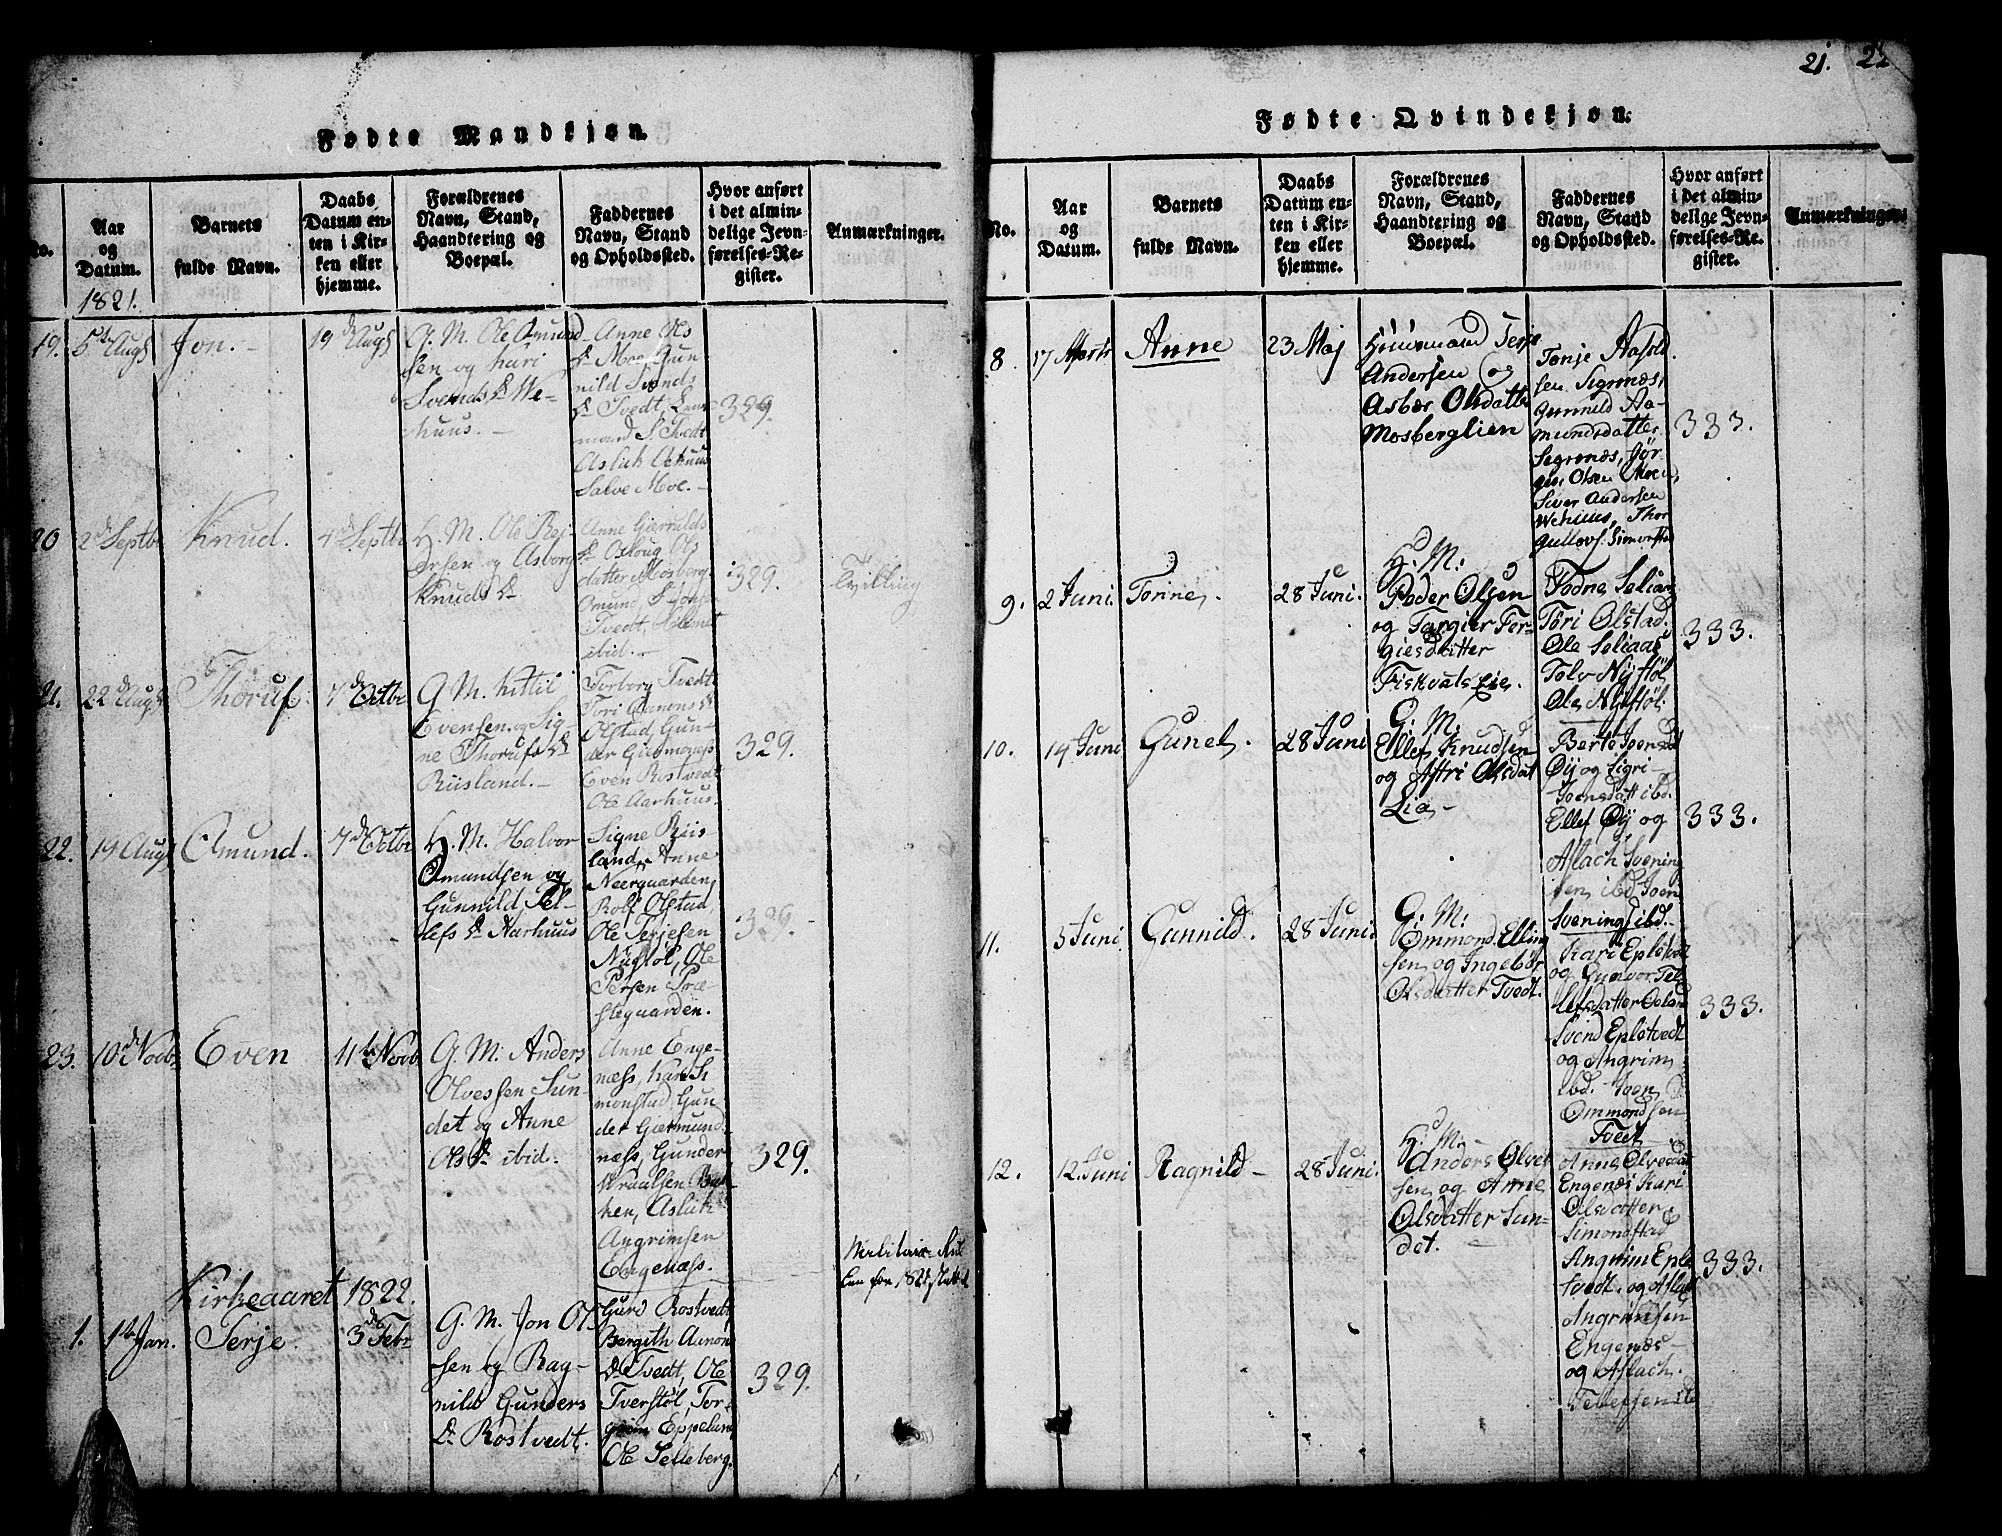 Fødte Mandkjøn.
No.
Aar og Datum.
Barnets fulde Navn.
Daabs Datum enten i Kirken eller hjemme.
Forældrenes Navn, Stand, Haandtering og Boepæl.
Faddernes Navn, Stand og Opholdssted.
Hvor anført i det almindelige Jevnførelses-Register.
Anmærkninger.
1821.
19.
5te Augs
Jon.-
19de Augs
G. M. Ole Amund
sen og Kari
Svends Dr We-
huus.-
Anne Ols
Dr Moe, Gun
nild Svends
Dr Tvedt,
mand S. Tvedt
Aslak
Salve Moe.-
329.
20
2de Septbr
Knud.
4de Septbr
H. M. Ole Rej-
ersen og Asborg
Knuds Dr
Anne Gierulds
Dr Osloug Ols
datter Mosberg
Omund
Tvedt,
ibid.-
329.
Tvilling
21.
22de Augs
Thoruf.
7de Octbr
G. M. Kittil
Evensen og Sig-
ne Thorufs Dr
Riisland.-
Torborg Tvedt
Tori Aanons Dr
Olstad, Gun-
der Giermonæss
Even Rostvedt
Ole Aarhuus.
329.
22.
19 Augs
Omund.
7de Octbr
H. M. Halvor
Omundsen og
Gunnild Tel-
lefs Dr Aarhuus
Signe Riis-
land, Anne
Neerguarden,
Rolf Olstad,
Ole Terjesen
Nystøl, Ole
Persen Præ-
steguarden.
329.-
23.
10de Novbr
Even
11te Novb
G. M. Anders
Olvessen Sun-
det og Anne
Ols Dr ibid.
Anne Enge-
næss, Kari Si
monstad, Gun
der Giermund-
næss, Gunder
Haralsen Bak-
ken, Aslak
Angrimsen
Engenæss.
329.
Kirkeaaret 1822.
1.
1te Jan.
Terje
3de Febr
G. M. Jon Ol-
sen og Rag-
nild Gunders
Dr Rostvedt.
Gurd Rostvedt,
Bergith Aanon
Dr Tvedt, Ole
Tverstøl, Tor-
grim Eppelund
Ole Selleberg.
329.
Militair Rul
len for 1821
21.
22
Fødte Qvindekjøn.
No.
Aar og Datum.
Barnets fulde Navn.
Daabs Datum enten i Kirken eller hjemme.
Forældrenes Navn, Stand, Haandtering og Boepæl.
Faddernes Navn, Stand og Opholdssted.
Hvor anført i det almindelige Jevnførelses-Register.
Anmærkninger.
8.
17 Marts
Anne
23 Maj
Huusmand Terje
Andersen og
Asber Olsdatter
Mosberglien
Tonje Aasold
sen Sigernæs,
Gunnild Aa-
mundsdatter
Segernæs, Jør-
gen Olsen Moen,
Siver Andersen
Wehuus, Thor
Gullovs. Simonsta
333.
9.
2 Juni.
Torine.
28 Juni.
H: M:
Peder Olsen
og Targier Ter-
giesdatter
Fiskvats Eie.
Todne Seliaas
Tori Ølstad.
Ole Seliaas
Tolv Nystøl
Ole Nystøl.
333.
10.
14 Juni
Gunel.
28 Juni
G: M:
Ellef Knudsen
og Astri Olsdat
Lia-
Berte Joensdat
Øy og Sigri-
Joensdatt ibd.
Ellef Øy og
Aslach Svening
sen ibd Joen
Svenings ibd.
333.
11.
5 Juni
Gunnild.
28 Juni.
G: M:
Ommond Elling
sen og Ingebor
Olsdatter Tvedt.
Kari Epletvedt
og Gunvor Tel
lefsdatter
Svend Epletvedt
og Angrim
ibd. Joen
Ommondsen
Tvedt
333.
12.
12. Juni
Ragnild-
28 Juni.
H: M:
Anders Olvet
sen og Anne
Olsdatter Sun-
det.
Anne Olvesdat
Engenæs Kari
Olsdatter
Simonstad
Angrim Eple
tvedt. og Aslak
Angrimsen
Engenæs-
og Aslach.
Tellefsen
333.